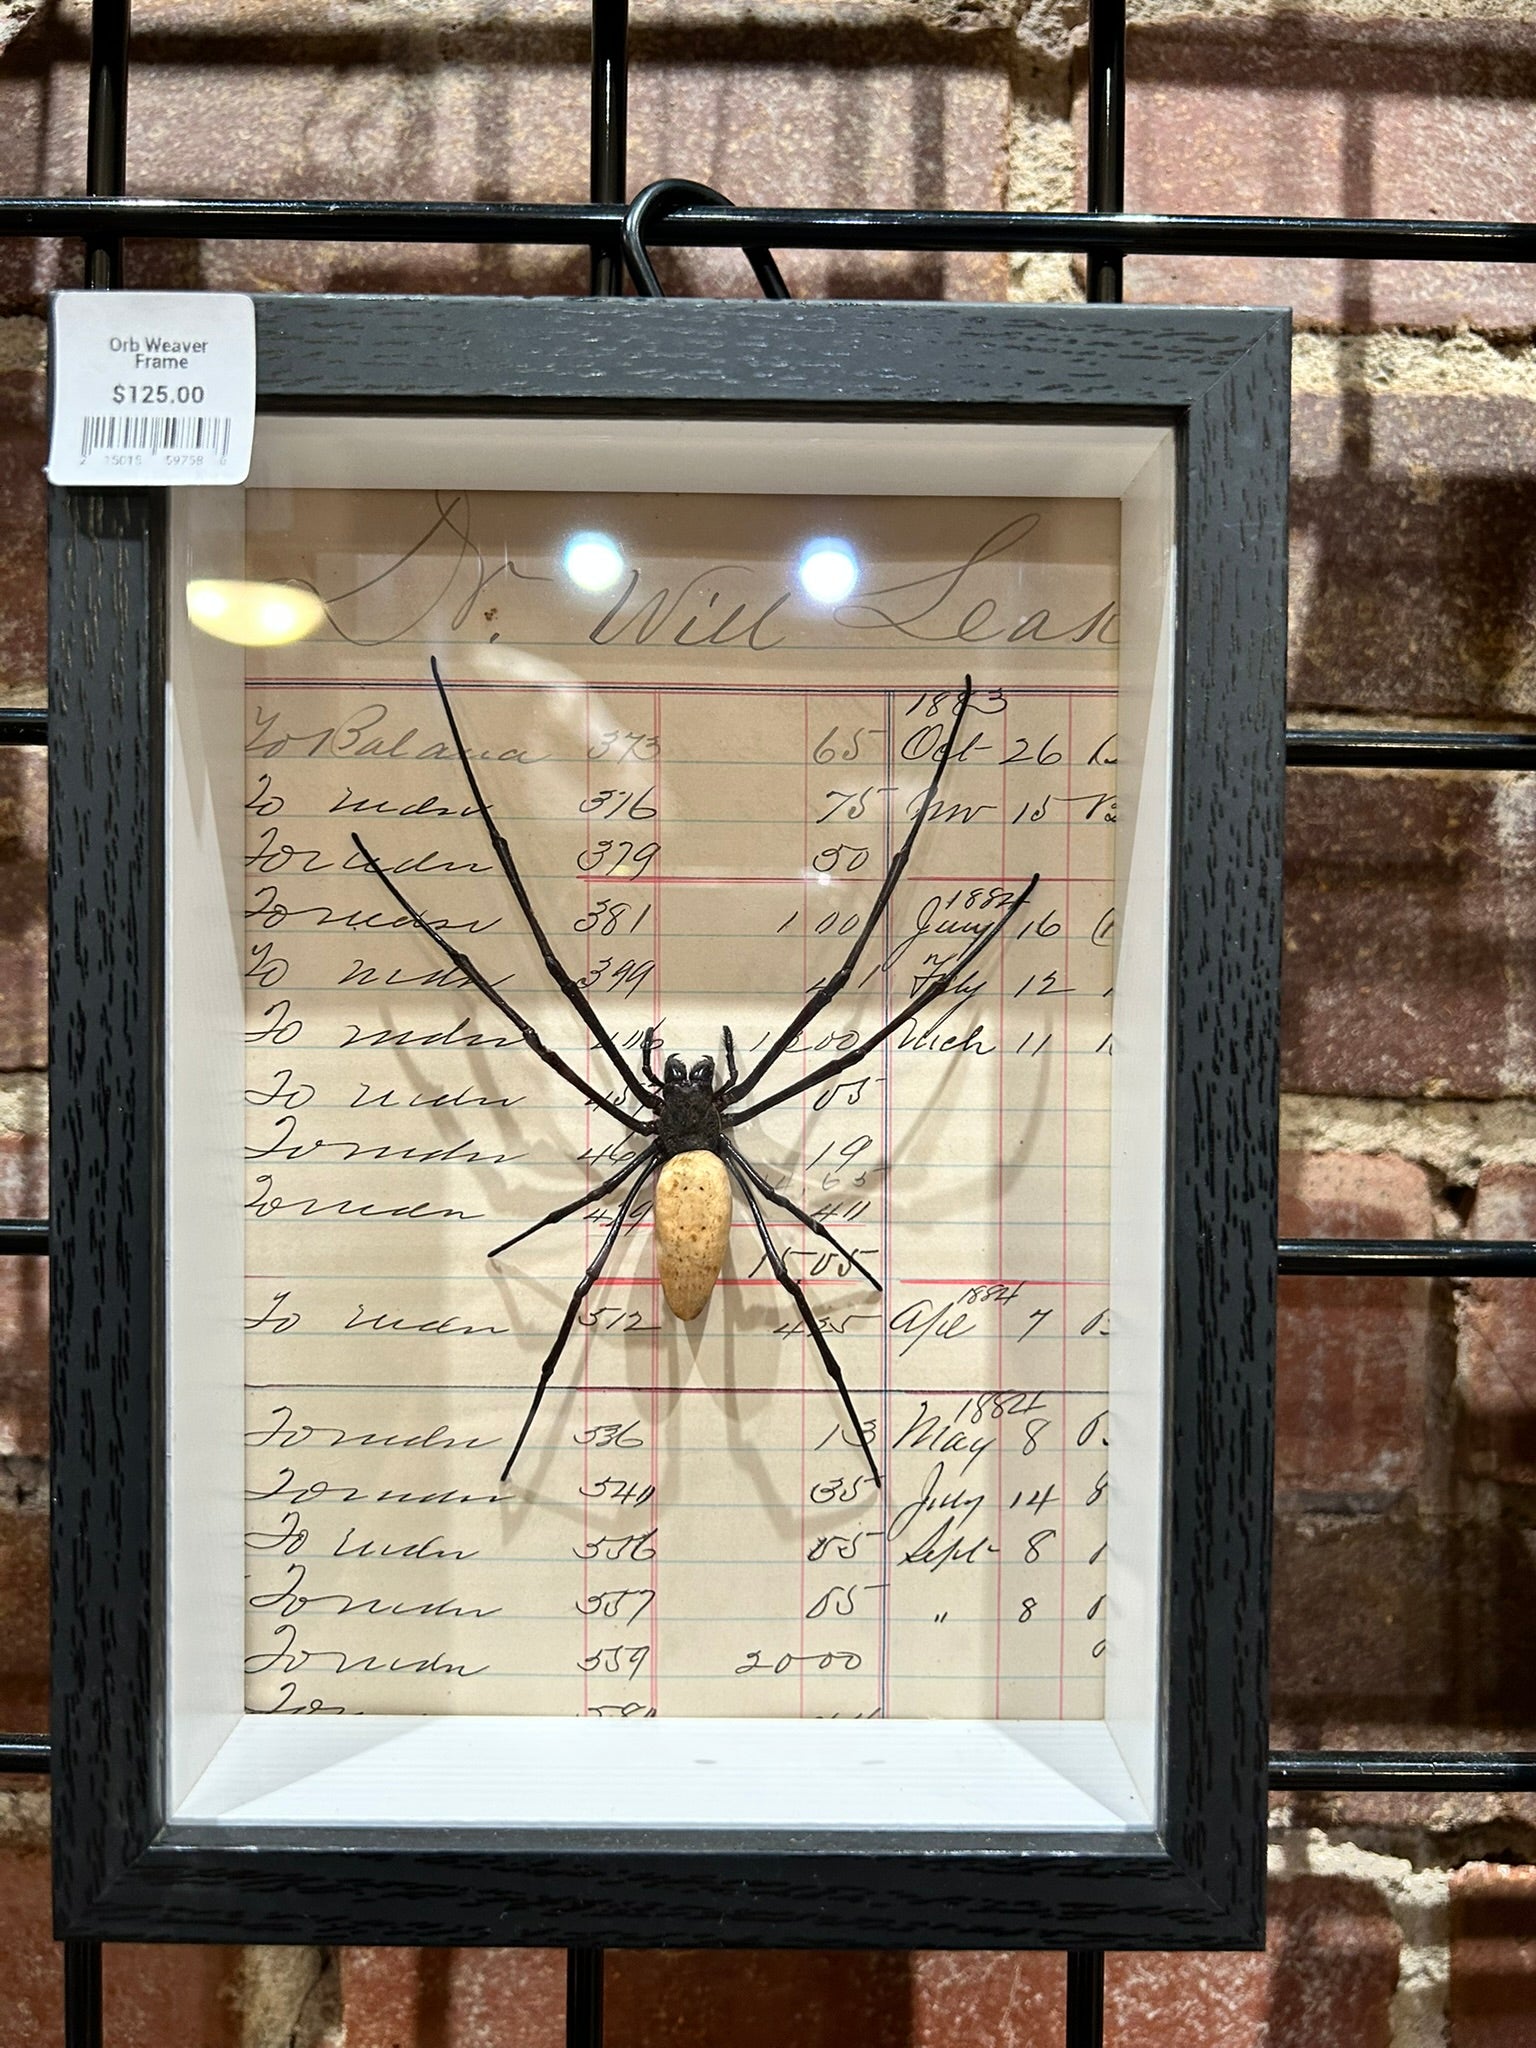 Orb Weaver
Frame
$125.00
Dr. Will Leak
1883
To Balance 373 65 Oct 26
To mdse 376 75 Nov 15
To mdse 379 50
1884
To mdse 381 1 00 Jany 16
To mdse 399 Feby 12
To mdse 00 Mch 11
To mdse 05
To mdse 19
4.65
To mdse 40
15 05
1884
To mdse 512 Apl 7
1884
To mdse 536 13 May 8
To mdse 540 35 July 14
To mdse 556 05 Sept 8
To mdse 557 05 " 8
To mdse 559 20 00
To